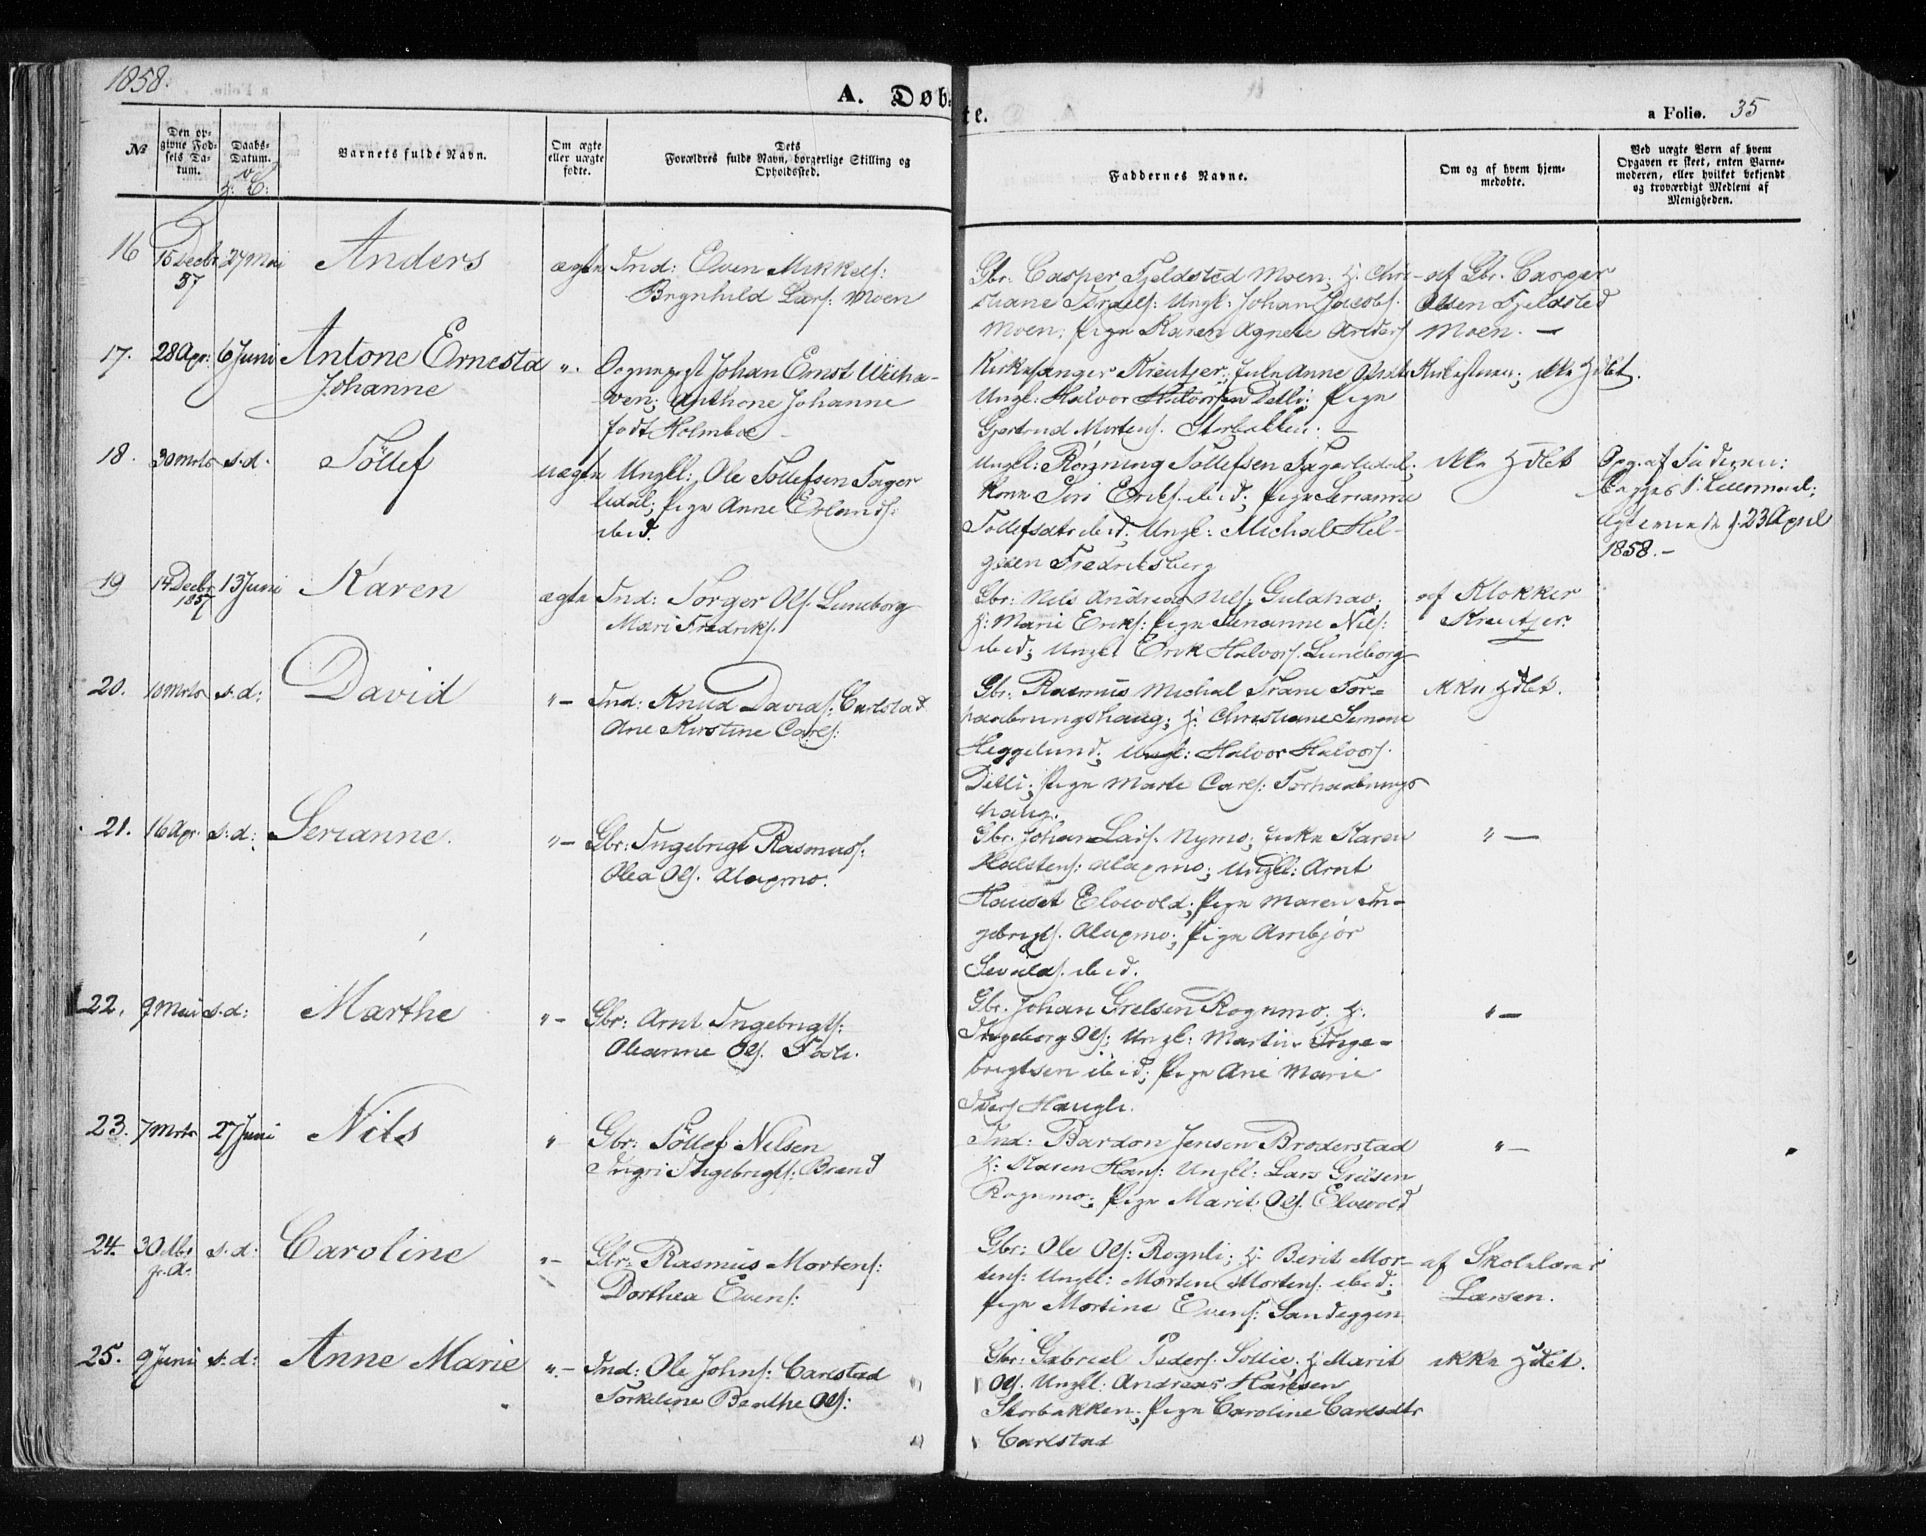 1858.
A. Døbte.
a Folio. 35
№
Den opgivne Fødsels Datum.
Daabs-Datum.
Barnets fulde Navn.
Om ægte eller uægte fødte.
Dets Forældres fulde Navn, borgerlige Stilling og Opholdssted.
Faddernes Navne.
Om og af hvem hjemmedøbte.
Ved uægte Børn af hvem Opgaven er skeet, enten Barnemoderen, eller hvilket bekjendt og troværdigt Medlem af Menigheden.
16 15 Decbr 57 27 Mai Anders ægte Ind: Even Mikkels:
Brynhild Lars: Moen
Gbr: Casper Fjeldsted Moen; H: Chri-
stiane Ungk: Johan Jacobs.
Moen; Pige Karen Agnete
af Gbr. Casper
Olsen Fjeldsted
Moen. —
17. 28 Apr: 6 Juni Antone Ernesta
Johanne
". Sogneprest Johan Ernst
Anthone Johanne
født Holmboe
Kirkesanger Kreutzer; Anne
Ungk: Halvor Detli; Pige
Gjertrud Mortens. Storbakken. —
ikke Hdbt.
18. 30 Mrts s.d. Töllef uægte Ungkl: Ole Tollefsen Fager
lidal; Pige Anne Erlands:
ibid.
Ungk: Rönning Tollefsen Fagerlidal;
Kone Siri Eriks. ibid; Pige Serianne
Tollefsdtr ibid; Ungk: Michal Hel-
gesen Fredriksberg
ikke Hdbt
Opg. af Faderen:
23 April
1858. —
19 14 Decbr 1857 13 Juni Karen ægte Ind: Torger Ols. Luneborg
Mari Fredriks.
Gbr: Nils Andreas Nils. Guldhav;
H: Marie Eriks: Pige Serianne Nils:
ibid; Ungk: Erik Halvors. Luneborg
af Klokker
Kreutzer.
20. 10 Mrts s.d: David "— Ind: Knud Davids: Carlstad
Ane Kirstine Carls:
Gbr: Rasmus Michal Trane For-
haabningshaug; H: Christiane Simone
Heggelund; Ungk: Halvor Halvors.
Detli; Pige Marte Carls: Forhaabnings
haug.
ikke Hdbt.
21. 16 Apr. s.d: Serianne. "— Gbr: Ingebrigt Rasmuss:
Olea Ols. Alapmo.
Gbr. Johan Lars. Nymo; Enke Karen
Halstens: Alapmo; Ungkl: Arnt
Hauset Elvevold; Pige Maren In-
gebrigts. Alapmo; Pige Ambjør
Sevalds. ibid.
"—
22. 9 Mai s.d: Marthe "— Gbr: Arnt Ingebrigts:
Oleanne Ols. Fosli.
Gbr. Johan Grelsen Rognmo; H:
Ingeborg Ols; Ungk: Martin Inge-
brigtsen ibid; Pige Ane Marie
Ivers Haugli.
"—
23. 7 Mrts 27 Juni Nils " Gbr: Töllef Nilsen
Ingri Ingebrigts: Brand
Ind: Bardon Jensen Broderstad
H: Karen Hans: Ungkl: Lars Grelsen
Rognmo; Pige Marit Ols. Elvevold
"—
24. 30 s.d: Caroline "— Gbr: Rasmus Mortens:
Dorthea Evens:
Gbr: Ole Ols: Rognli; H: Berit Mor-
tens: Ungkl: Morten Mortens: ibid;
Pige Mortine Evens: Sandeggen
af Skolelærer
Larsen.
25. 9 Juni s.d: Anne Marie "— Ind: Ole Johns: Carlstad
Torkeline Benthe Ols:
Gbr: Gabriel Peders. Sollie; H: Marit
Ols. Ungkl: Andreas Hansen
Storbakken; Pige Caroline Carlsdtr
Carlstad
ikke Hdbt.